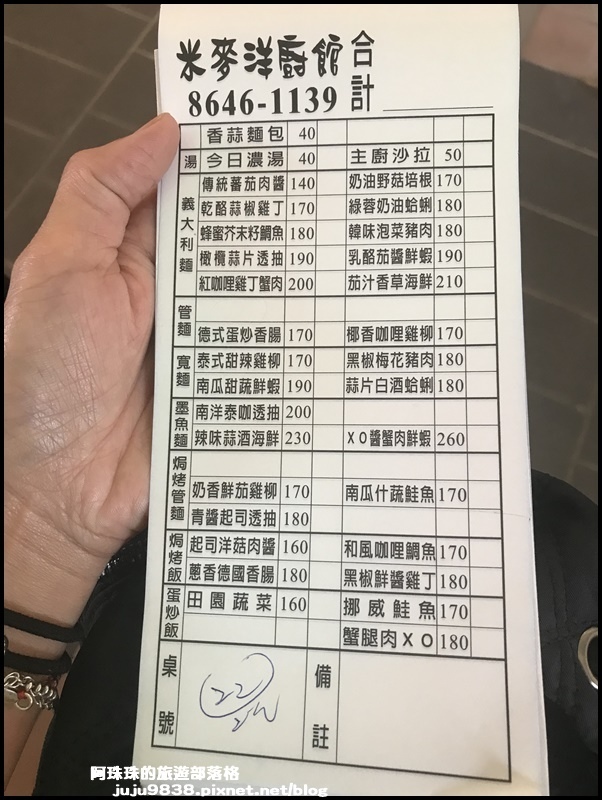 米麥洋廚館 合計
8646-1139
香蒜麵包 40
湯 今日濃湯 40 主廚沙拉 50
義大利麵
傳統蕃茄肉醬 140 奶油野菇培根 170
乾酪蒜椒雞丁 170 綠蓉奶油蛤蜊 180
蜂蜜芥末籽鯛魚 180 韓味泡菜豬肉 180
橄欖蒜片透抽 190 乳酪茄醬鮮蝦 190
紅咖哩雞丁蟹肉 200 茄汁香草海鮮 210
管麵
德式蛋炒香腸 170 椰香咖哩雞柳 170
寬麵
泰式甜辣雞柳 170 黑椒梅花豬肉 180
南瓜甜蔬鮮蝦 190 蒜片白酒蛤蜊 180
墨魚麵
南洋泰咖透抽 200
辣味蒜酒海鮮 230 XO醬蟹肉鮮蝦 260
焗烤管麵
奶香鮮茄雞柳 170 南瓜什蔬鮭魚 170
青醬起司透抽 180
焗烤飯
起司洋菇肉醬 160 和風咖哩鯛魚 170
蔥香德國香腸 180 黑椒鮮醬雞丁 180
蛋炒飯
田園蔬菜 160 挪威鮭魚 170
蟹腿肉XO 180
桌號 22 備註
阿珠珠的旅遊部落格
juju9838.pixnet.net/blog